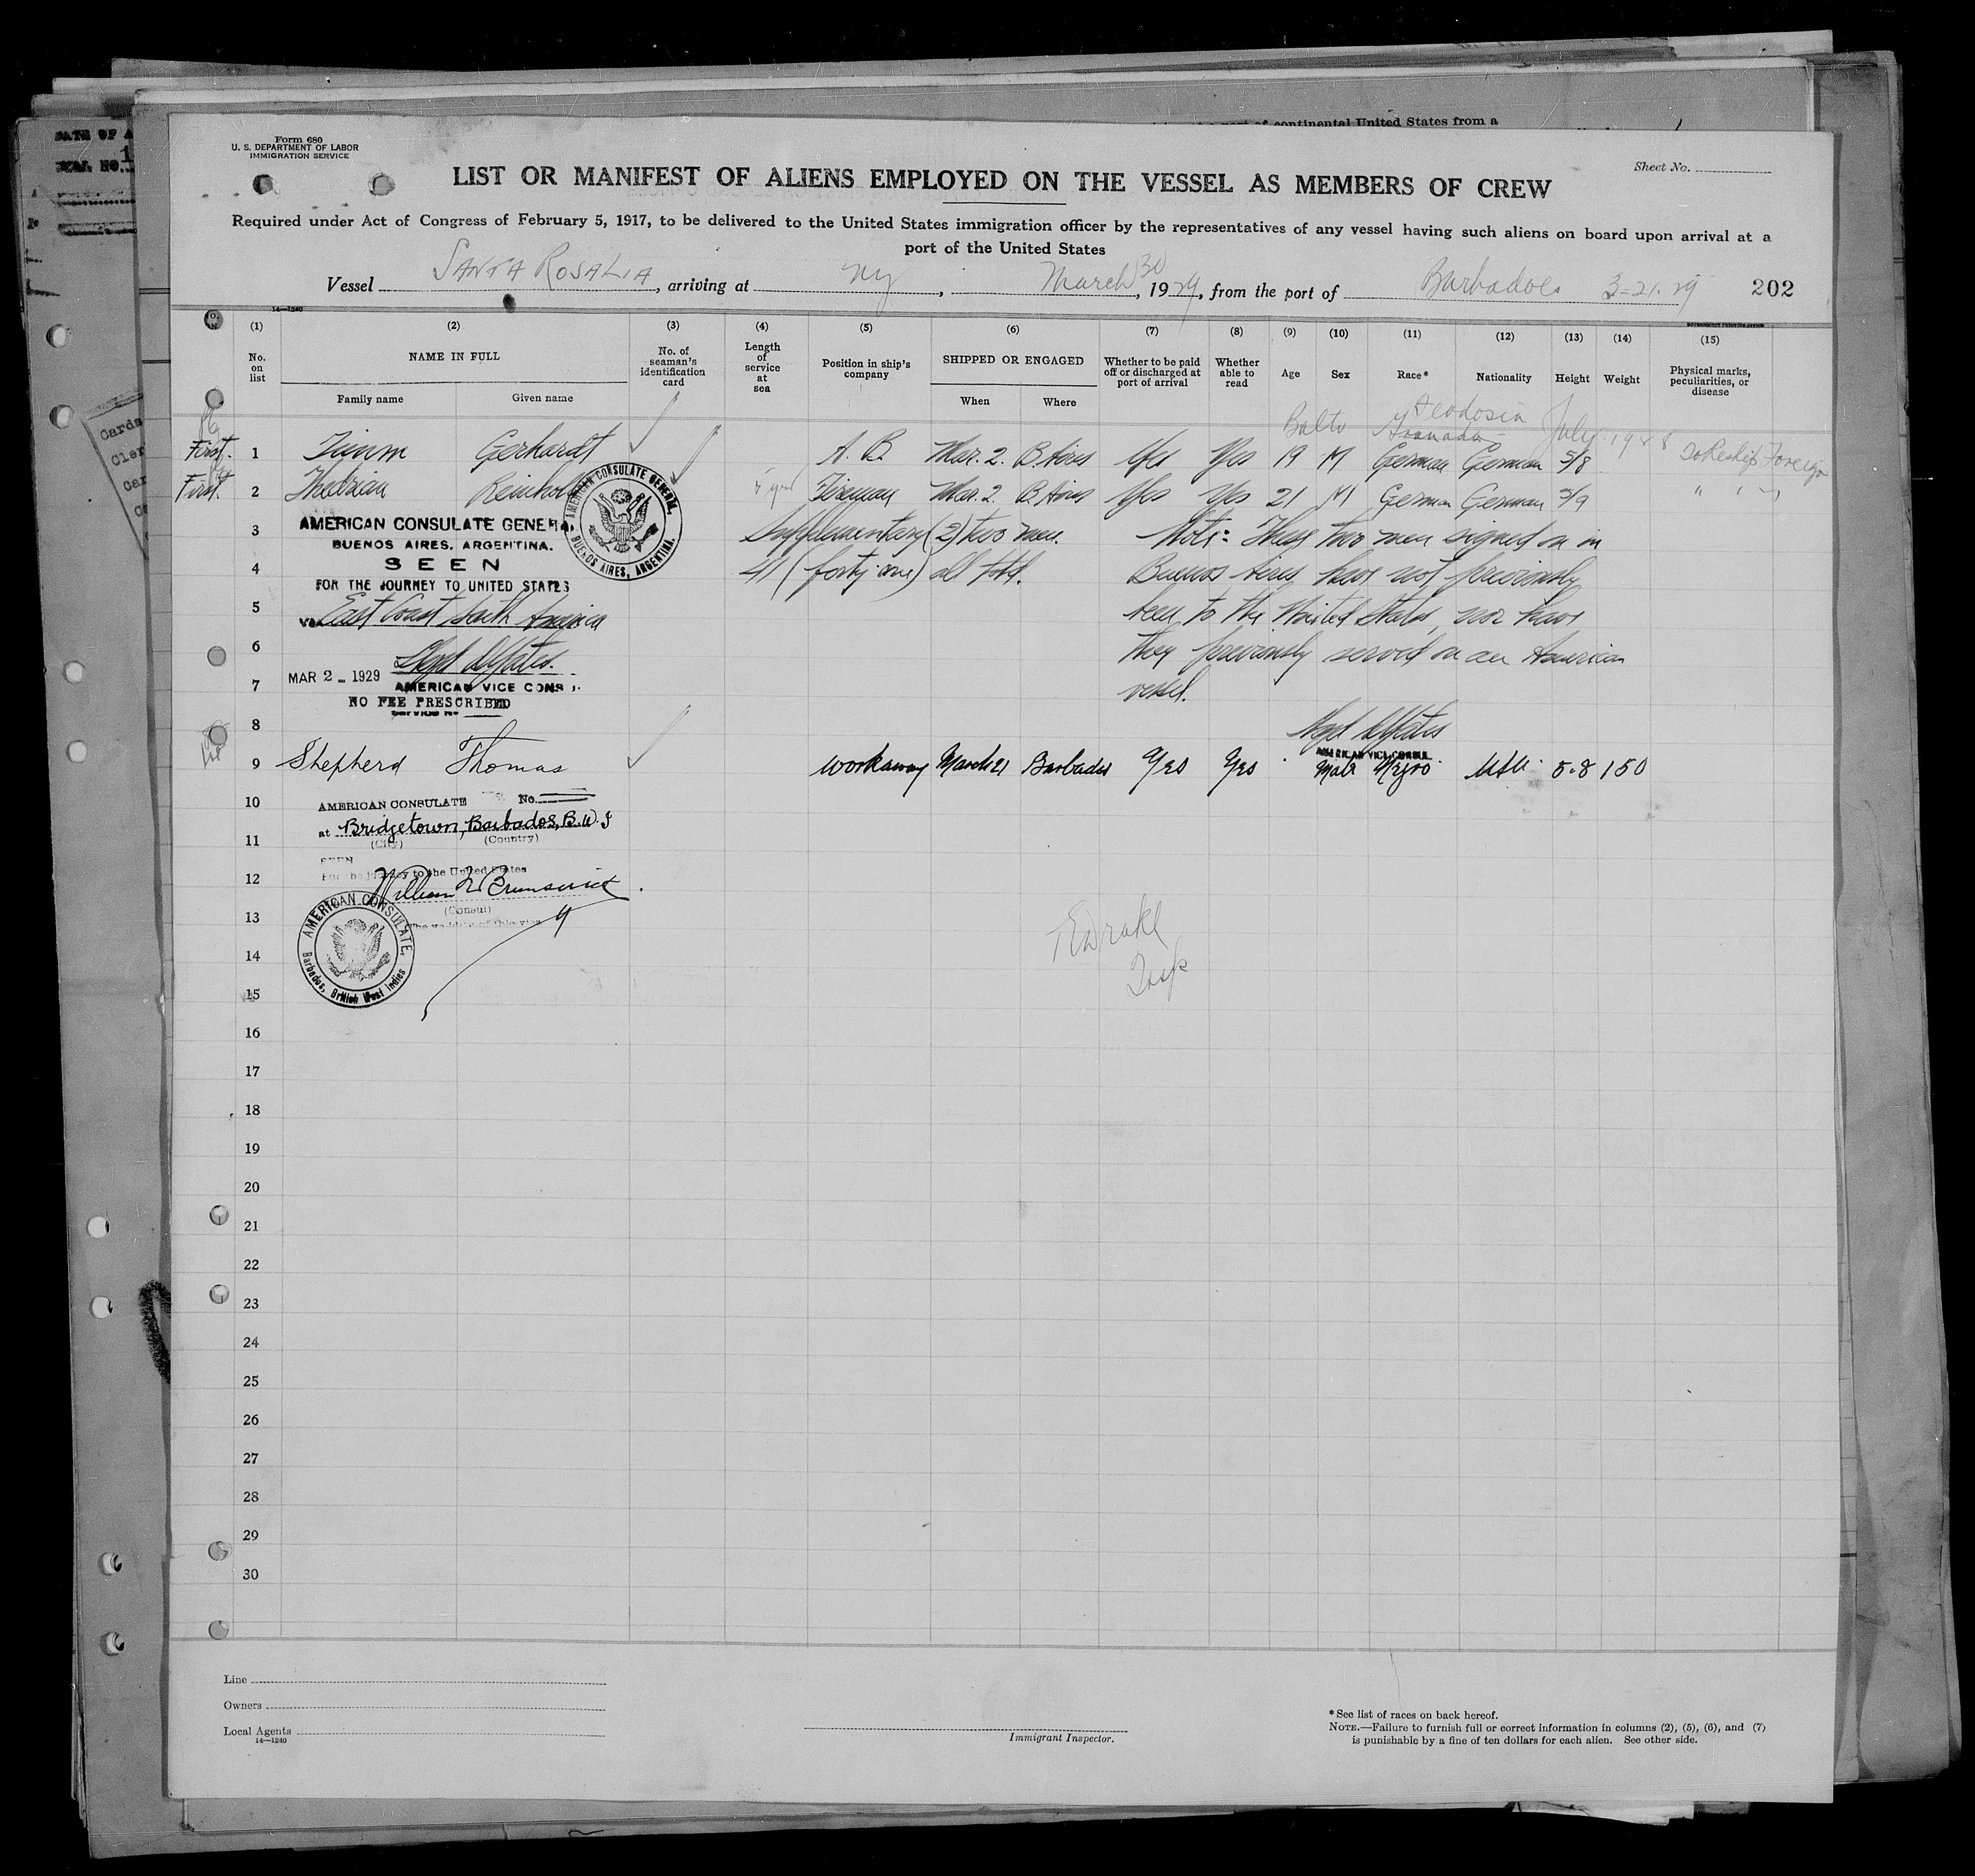 Form 680
U. S. DEPARTMENT OF LABOR
IMMIGRATION SERVICE
Sheet No.
LIST OR MANIFEST OF ALIENS EMPLOYED ON THE VESSEL AS MEMBERS OF CREW
Required under Act of Congress of February 5, 1917, to be delivered to the United States immigration officer by the representatives of any vessel having such aliens on board upon arrival at a
port of the United States
Vessel SANTA ROSALIA, arriving at NY, March 30, 1929, from the port of Barbados 3-21-29 202
14—1240
(1) (2) (3) (4) (5) (6) (7) (8) (9) (10) (11) (12) (13) (14) (15)
No. on list NAME IN FULL No. of seaman's identification card Length of service at sea Position in ship's company SHIPPED OR ENGAGED Whether to be paid off or discharged at port of arrival Whether able to read Age Sex Race* Nationality Height Weight Physical marks, peculiarities, or disease
Family name Given name When Where
Balto July 1928
First. 1 Timm Gerhardt A. B. Mar. 2. B. Aires Yes Yes 19 M German German 5/8 Reship Foreign
First. 2 Reinhold Fireman Mar. 2. B. Aires Yes Yes 21 M German German 5/9 " " "
3 Supplementary (2) two men. Note: These two men signed on in
4 41 (forty one) all told. Buenos Aires have not previously
5 been to the United States, nor have
6 they previously served on an American
7 vessel.
AMERICAN CONSULATE GENERAL
BUENOS AIRES, ARGENTINA.
SEEN
FOR THE JOURNEY TO UNITED STATES
VIA East Coast South America
MAR 2 - 1929
AMERICAN VICE CONSUL
NO FEE PRESCRIBED
AMERICAN CONSULATE GENERAL, BUENOS AIRES, ARGENTINA.
8
AMERICAN VICE CONSUL
9 Shepherd Thomas workaway March 21 Barbados Yes Yes Male Negro 5.8 150
10 AMERICAN CONSULATE No.
at Bridgetown, Barbados, B.W.I
11 (City) (Country)
SEEN
For the journey to the United States
12 William Brunswick
(Consul)
13 The validity of this visa
AMERICAN CONSULATE, Barbados, British West Indies
Drake
14
Insp
15
16
17
18
19
20
21
22
23
24
25
26
27
28
29
30
Line
Owners
Local Agents
14—1240
Immigrant Inspector.
*See list of races on back hereof.
NOTE.—Failure to furnish full or correct information in columns (2), (5), (6), and (7)
is punishable by a fine of ten dollars for each alien. See other side.